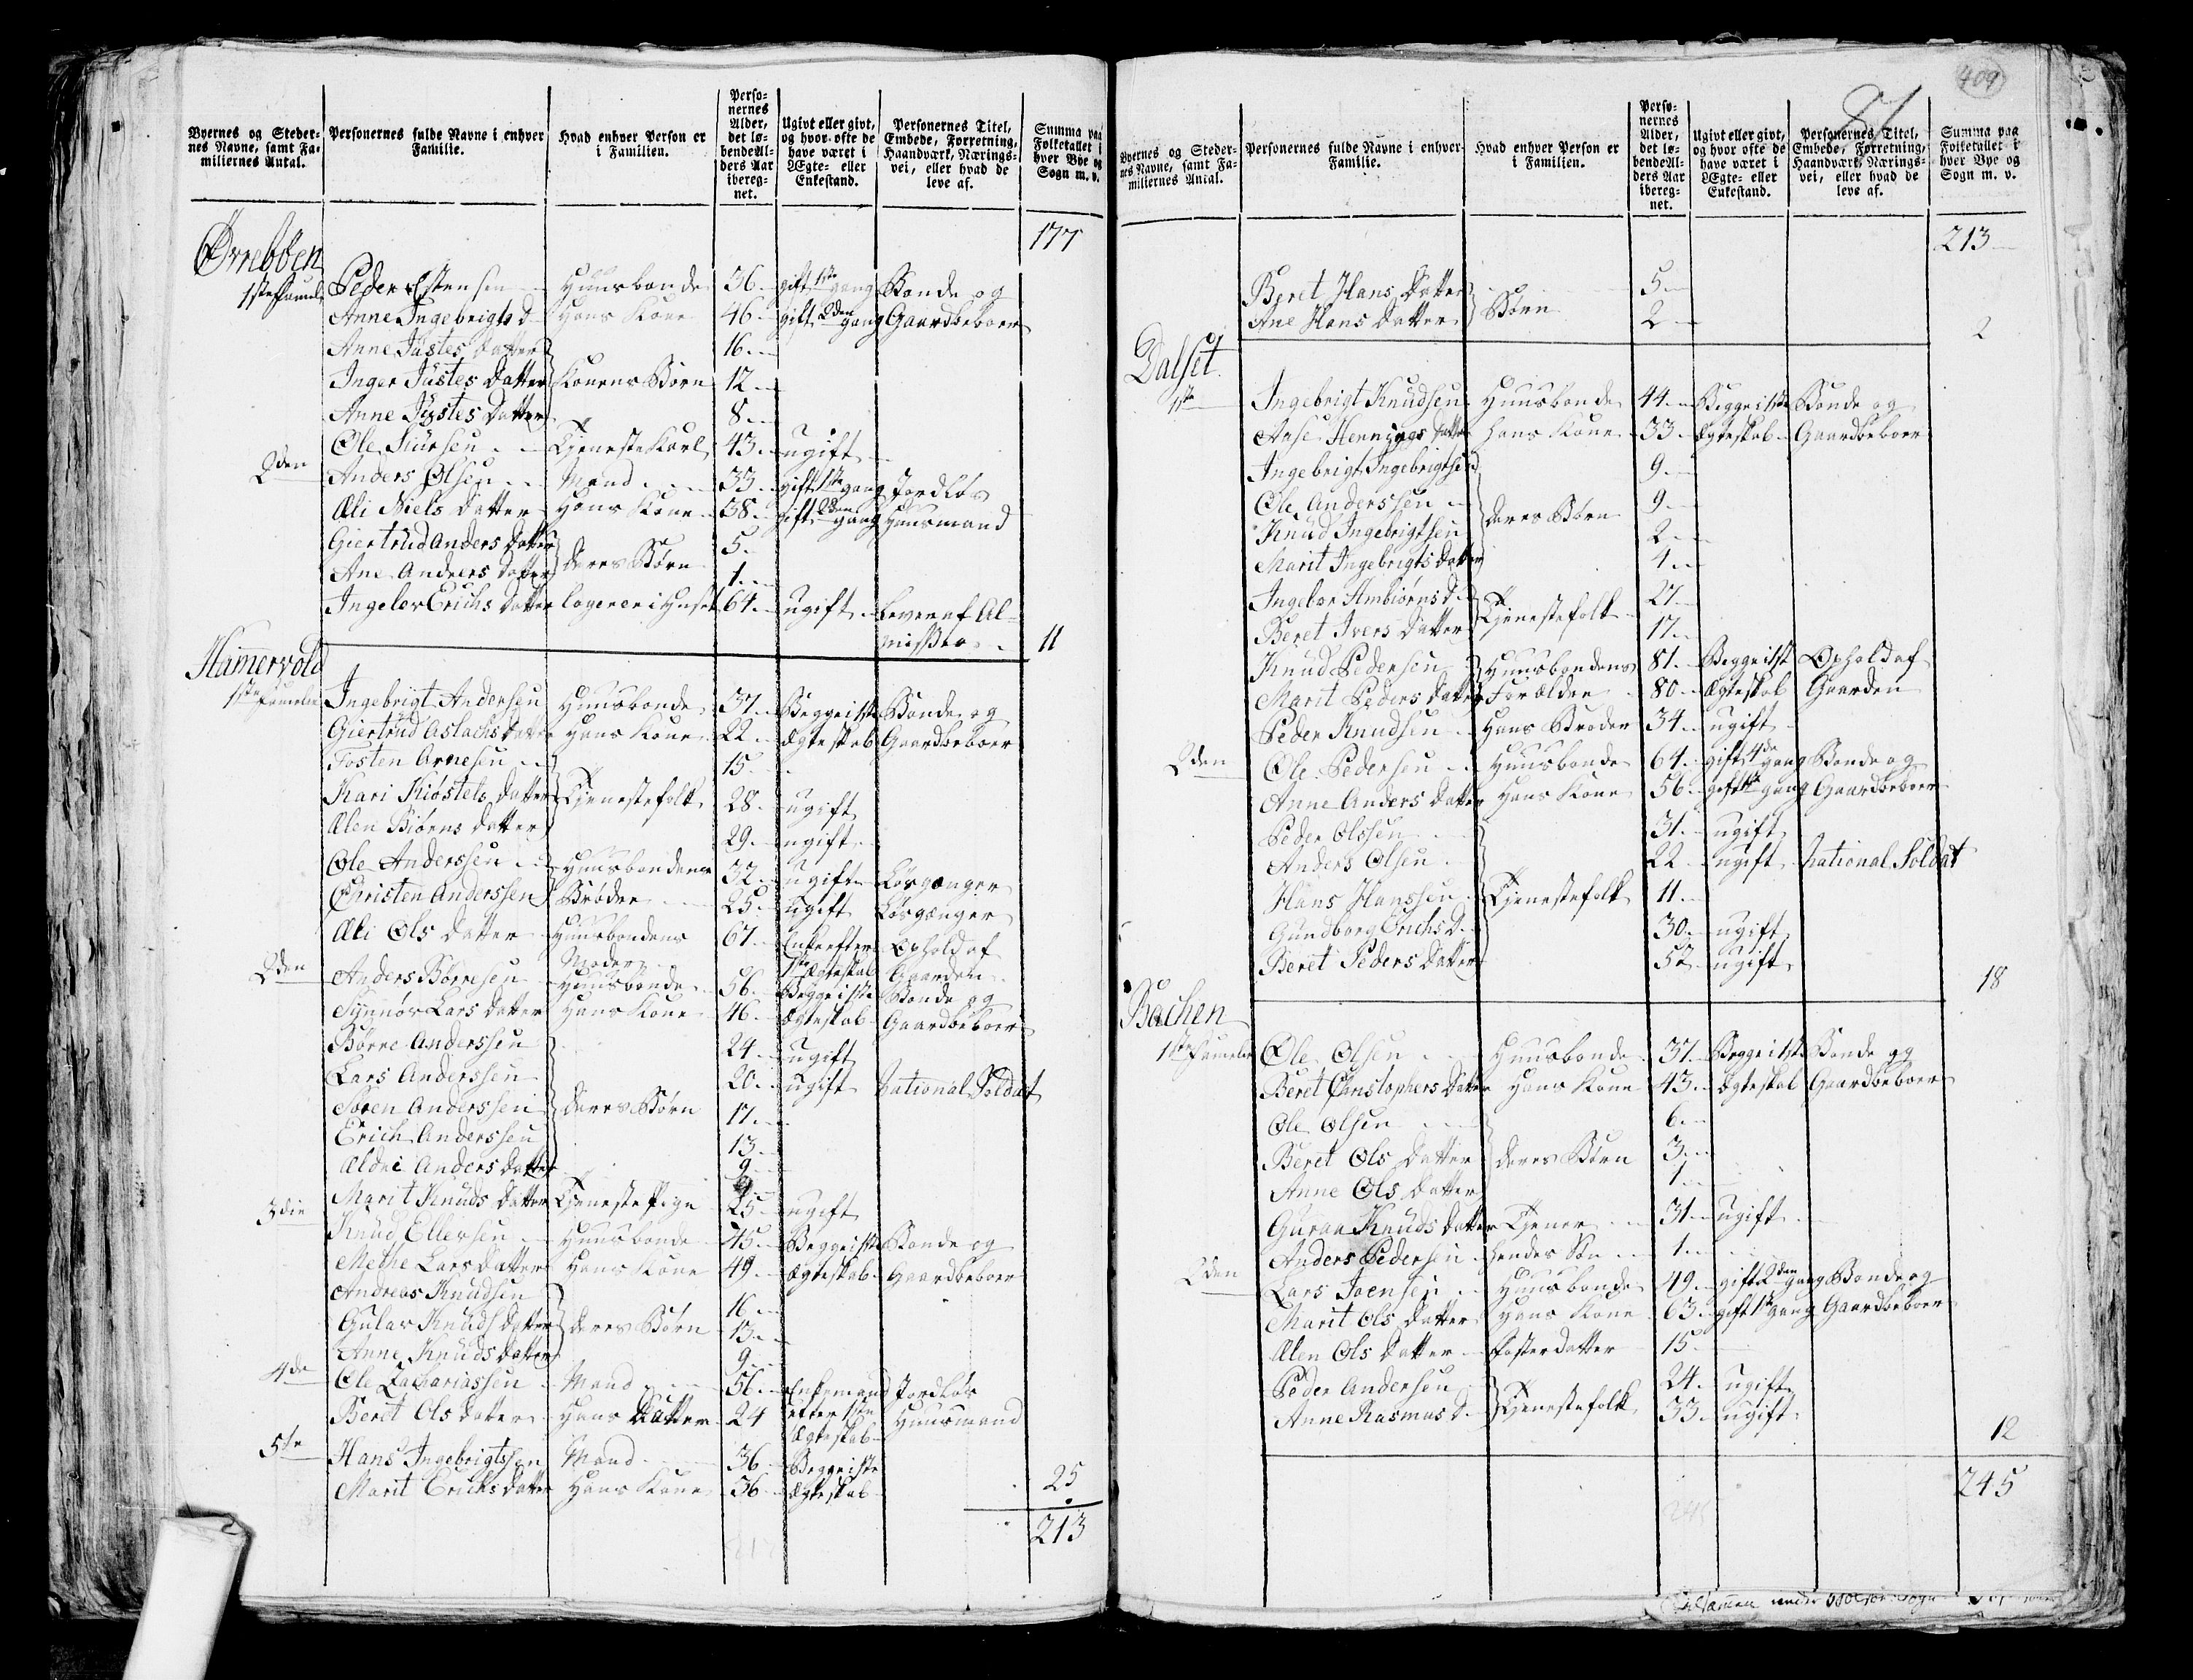 Byernes og Steder-
nes Navne, samt Fa-
miliernes Antal.
Personernes fulde Navne i enhver
Familie.
Hvad enhver Person er
i Familien.
Perso-
nernes
Alder,
det lø-
bende Al-
ders Aar
ibereg-
net.
Ugivt eller givt,
og hvor ofte de
have været i
Ægte- eller
Enkestand.
Personernes Titel,
Embede, Forretning,
Haandværk, Nærings-
vei, eller hvad de
leve af.
Summa paa
Folketallet i
hver Bye og
Sogn m. v.
177
Øvrebben
1ste Familie Peder Estensen Huusbonde 36 gift 1ste gang Bonde og
Anne Ingebrigts D Hans Kone 46 gift 2den gang Gaardbeboer
Anne Justes Datter 16
Inger Justes Datter Konens Børn 12
Anne Justes Datter 8
Ole Siursen Tjeneste Karl 43 ugift
2den Anders Olsen Mand 33 gift 1ste gang Jordløs
Æli Niels Datter Hans Kone 38 gift 2den gang Huusmand
Giertrud Anders Datter 5
Ane Anders Datter deres Børn 1
Ingelev Erichs Datter logerer i Huset 64 ugift Lever af Al-
misser 11
Hamervold
1ste Familie Ingebrigt Andersen Huusbonde 37 Begge i 1ste Bonde og
Giertrud Aslachs Datter Hans Kone 22 Ægteskab Gaardbeboer
Tosten Arnesen 15
Kari Kiøstels Datter Tjenestefolk 28 ugift
Ælen Biørns Datter 29 ugift
Ole Anderssen Huusbondens 32 ugift Løsgænger
Christen Anderssen Brødre 25 ugift Løsgænger
Æli Ols Datter Huusbondens 67 Enke efter Ophold af
Moder 1ste Ægteskab Gaarden
2den Anders Børresen Huusbonde 56 Begge i 1ste Bonde og
Synnøv Lars Datter Hans Kone 46 Ægteskab Gaardbeboer
Børre Anderssen 24 ugift
Lars Anderssen 20 ugift National Soldat
Søren Anderssen deres Børn 17
Erich Anderssen 13
Ældri Anders Datter 9
Marit Knuds Datter Tjeneste Pige 25 ugift
3die Knud Ellevsen Huusbonde 45 Begge i 1ste Bonde og
Methe Lars Datter Hans Kone 49 Ægteskab Gaardbeboer
Andreas Knudsen 16
Gulav Knuds Datter deres Børn 13
Anne Knuds Datter 9
4de Ole Zachariassen Mand 56 Enkemand Jordløs
Beret Ols Datter Hans Datter 24 efter 1ste Huusmand
Ægteskab
5te Hans Ingebrigtssen Mand 36 Begge i 1ste
Marit Erichs Datter Hans Kone 36 Ægteskab 25
213
409
Byernes og Steder-
nes Navne, samt Fa-
miliernes Antal.
Personernes fulde Navne i enhver
Familie.
Hvad enhver Person er
i Familien.
Perso-
nernes
Alder,
det lø-
bende Al-
ders Aar
ibereg-
net.
Ugivt eller givt,
og hvor ofte de
have været i
Ægte- eller
Enkestand.
Personernes Titel,
Embede, Forretning,
Haandværk, Nærings-
vei, eller hvad de
leve af.
Summa paa
Folketallet i
hver Bye og
Sogn m. v.
213
Beret Hans Datter 5
Ane Hans Datter Børn 2
2
Dalset
1ste Ingebrigt Knudsen Huusbonde 44 Begge i 1ste Bonde og
Anse Hennings Datter Hans Kone 33 Ægteskab Gaardbeboer
Ingebrigt Ingebrigtsen 9
Ole Anderssen 9
Knud Ingebrigtsen deres Børn 2
Marit Ingebrigts Datter 4
Ingebor Ambiørns D Tjenestefolk 27
Beret Ivers Datter 17
Knud Pedersen Huusbondens 81 Begge i 1st Ophold af
Marit Peders Datter Forældre 80 Ægteskab Gaarden
Peder Knudsen Hans Broder 34 ugift
2den Ole Pedersen Huusbonde 64 gift 4de gang Bonde og
Anne Anders Datter Hans Kone 56 gift 1ste gang Gaardbeboer
Peder Olssen 31 ugift
Anders Olsen 22 ugift National Soldat
Hans Hanssen Tjenestefolk 11
Gundborg Erichs D. 30 ugift
Beret Peders Datter 52 ugift
18
Bachen
1ste Familie Ole Olsen Huusbonde 37 Begge i 1ste Bonde og
Beret Christophers Datter Hans Kone 43 Ægteskab Gaardbeboer
Ole Olsen 6
Beret Ols Datter deres Børn 3
Anne Ols Datter 1
Guraa Knuds Datter Tjener 31 ugift
Anders Pedersen hendes Søn 1
2den Lars Joensen Huusbonde 49 gift 2den gang Bonde og
Marit Ols Datter Hans Kone 63 gift 1ste gang Gaardbeboer
Ælen Ols Datter Fosterdatter 15
Peder Andersen 24 ugift
Anne Rasmus D. Tjenestefolk 33 ugift
12
245